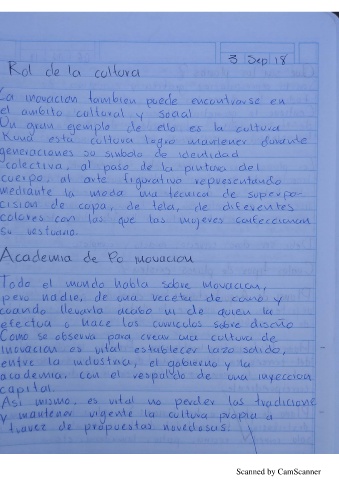 3 Sep 18
Rol de la cultura
La inovacion tambien puede encontrarse en
el ambito cultural y social
Un gran ejemplo de ello es la cultura
Kuna esta cultura logro mantener durante
generaciones so simbolo de identidad
colectiva, al paso de la pintura del
cuerpo, al arte figurativo representando
mediante la moda una tecnica de superpo-
cision de capa, de tela, de diferentes
colores con las que las mujeres confeccionan
su vestuario.
Academia de inovacion
Todo el mundo habla sobre inovacion,
pero nadie, de una receta de como y
cuando llevarla acabo ni de quien la
efectua o hace los curriculos sobre diseño
Como se observa para crear una cultura de
Inovacion es vital establecer lazo solido,
entre la industria, el gobierno y la
academia. con el respaldo de una inyeccion
capital.
Asi mismo, es vital no perder las tradicione
y mantener vigente la cultura propia a
travez de propuestas novedosas.
Scanned by CamScanner